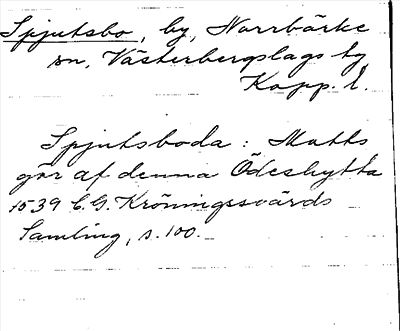 Spjutsbo, by, Norrbärke
sn, Västerbergslags tg
Kopp. l.
Spjutsboda : Matts
gör af denna Ödeshytta
1539 C. G. Kröningssvärds
Samling, s. 100.